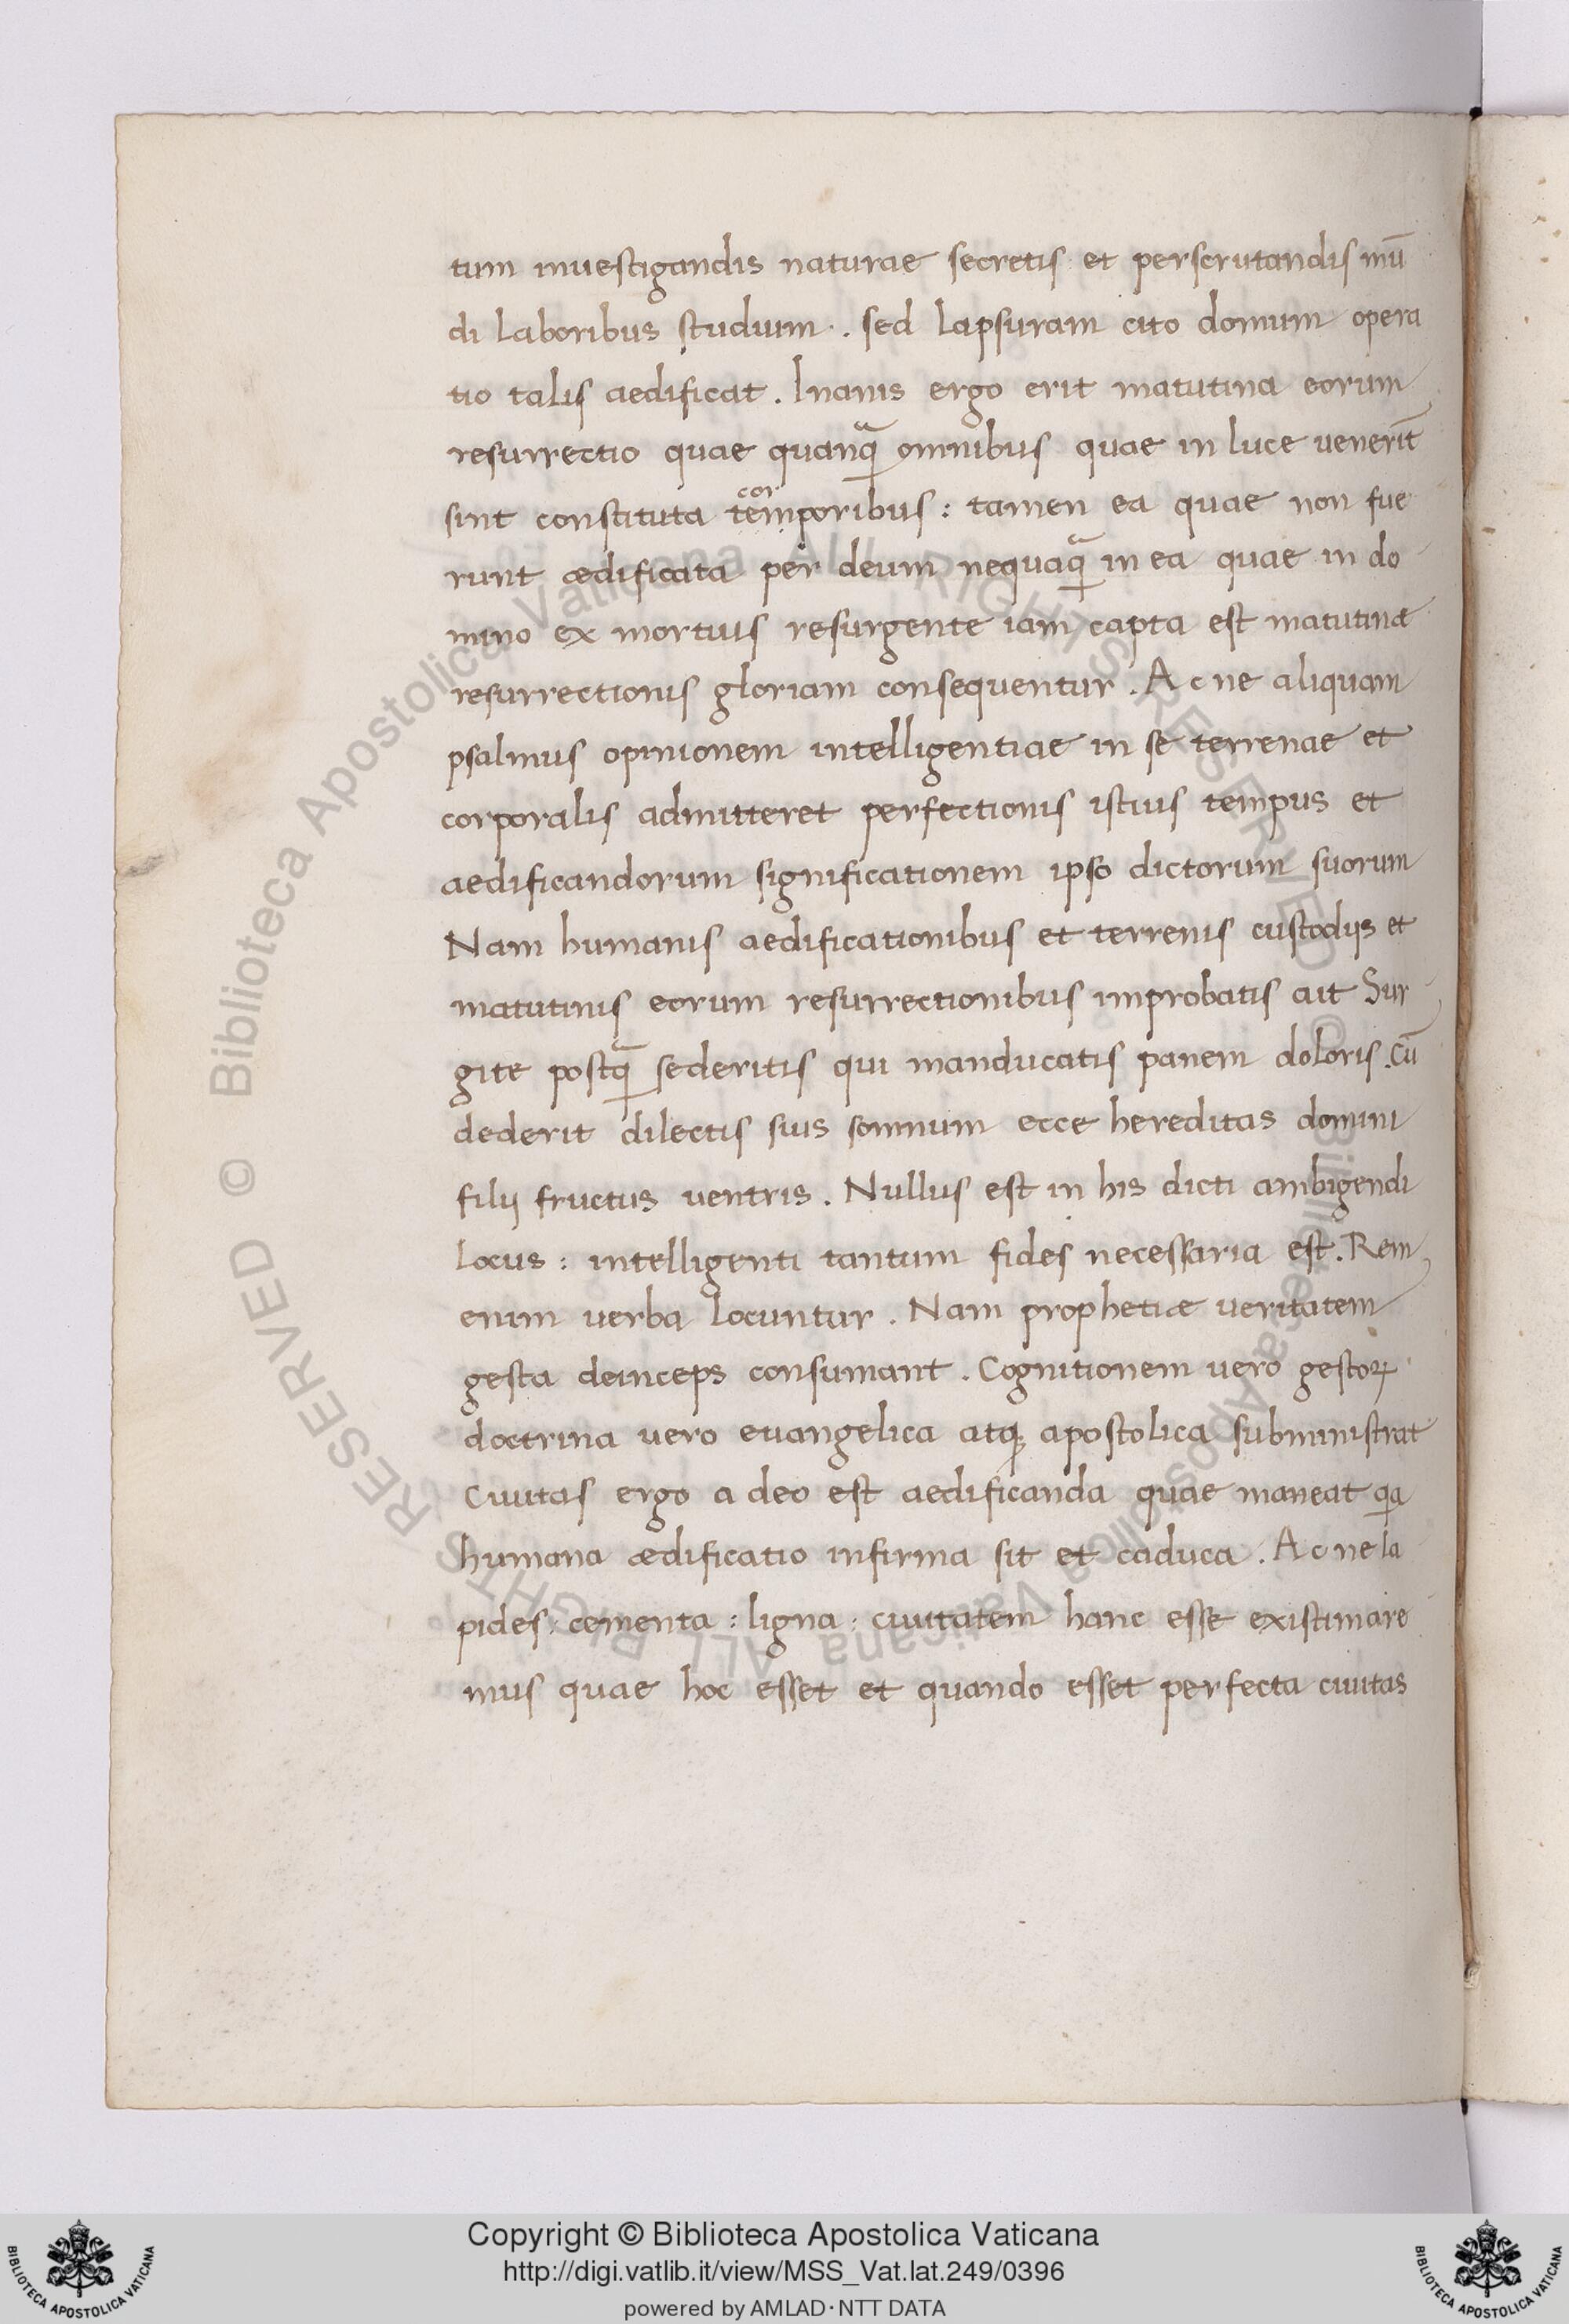 tum inuestigandis naturae secretis et perscrutandis mū
di laboribus studium . sed lapsuram cito domum opera
tio talis aedificat . Inanis ergo erit matutina eorum
resurrectio quae quanq̃ omnibus quae in luce uenerīt
sint constituta temporibus : tamen ea quae non fue
cor
runt ædificata per deum nequaq̃ in ea quae in do
mino ex mortuis resurgente iam capta est matutinæ
resurrectionis gloriam consequentur . Ac ne aliquam
psalmus opinionem intelligentiae in se terrenae et
corporalis admitteret perfectionis istius tempus et
aedificandorum significationem ipso dictorum suorum
Nam humanis aedificationibus et terrenis custodijs et
matutinis eorum resurrectionibus improbatis ait Sur
gite postq̃ sederitis qui manducatis panem doloris . Cū
dederit dilectis suis somnum ecce hereditas domini
filij fructus uentris . Nullus est in his dicti ambigendi
locus : intelligenti tantum fides necessaria est . Rem
enim uerba locuntur . Nam prophetiæ ueritatem
gesta deinceps consumant . Cognitionem uero gestoꝝ
doctrina uero euangelica atq; apostolica subministrat
Ciuitas ergo a deo est aedificanda quae maneat qa
humana ædificatio infirma sit et caduca . Ac ne la
pides : cementa : ligna : ciuitatem hanc esse existimare
mus quae hoc esset et quando esset perfecta ciuitas
© Biblioteca Apostolica Vaticana ALL RIGHTS RESERVED
© Biblioteca Apostolica Vaticana ALL RIGHTS RESERVED
Copyright © Biblioteca Apostolica Vaticana
http://digi.vatlib.it/view/MSS_Vat.lat.249/0396
powered by AMLAD·NTT DATA
BIBLIOTECA APOSTOLICA VATICANA
BIBLIOTECA APOSTOLICA VATICANA